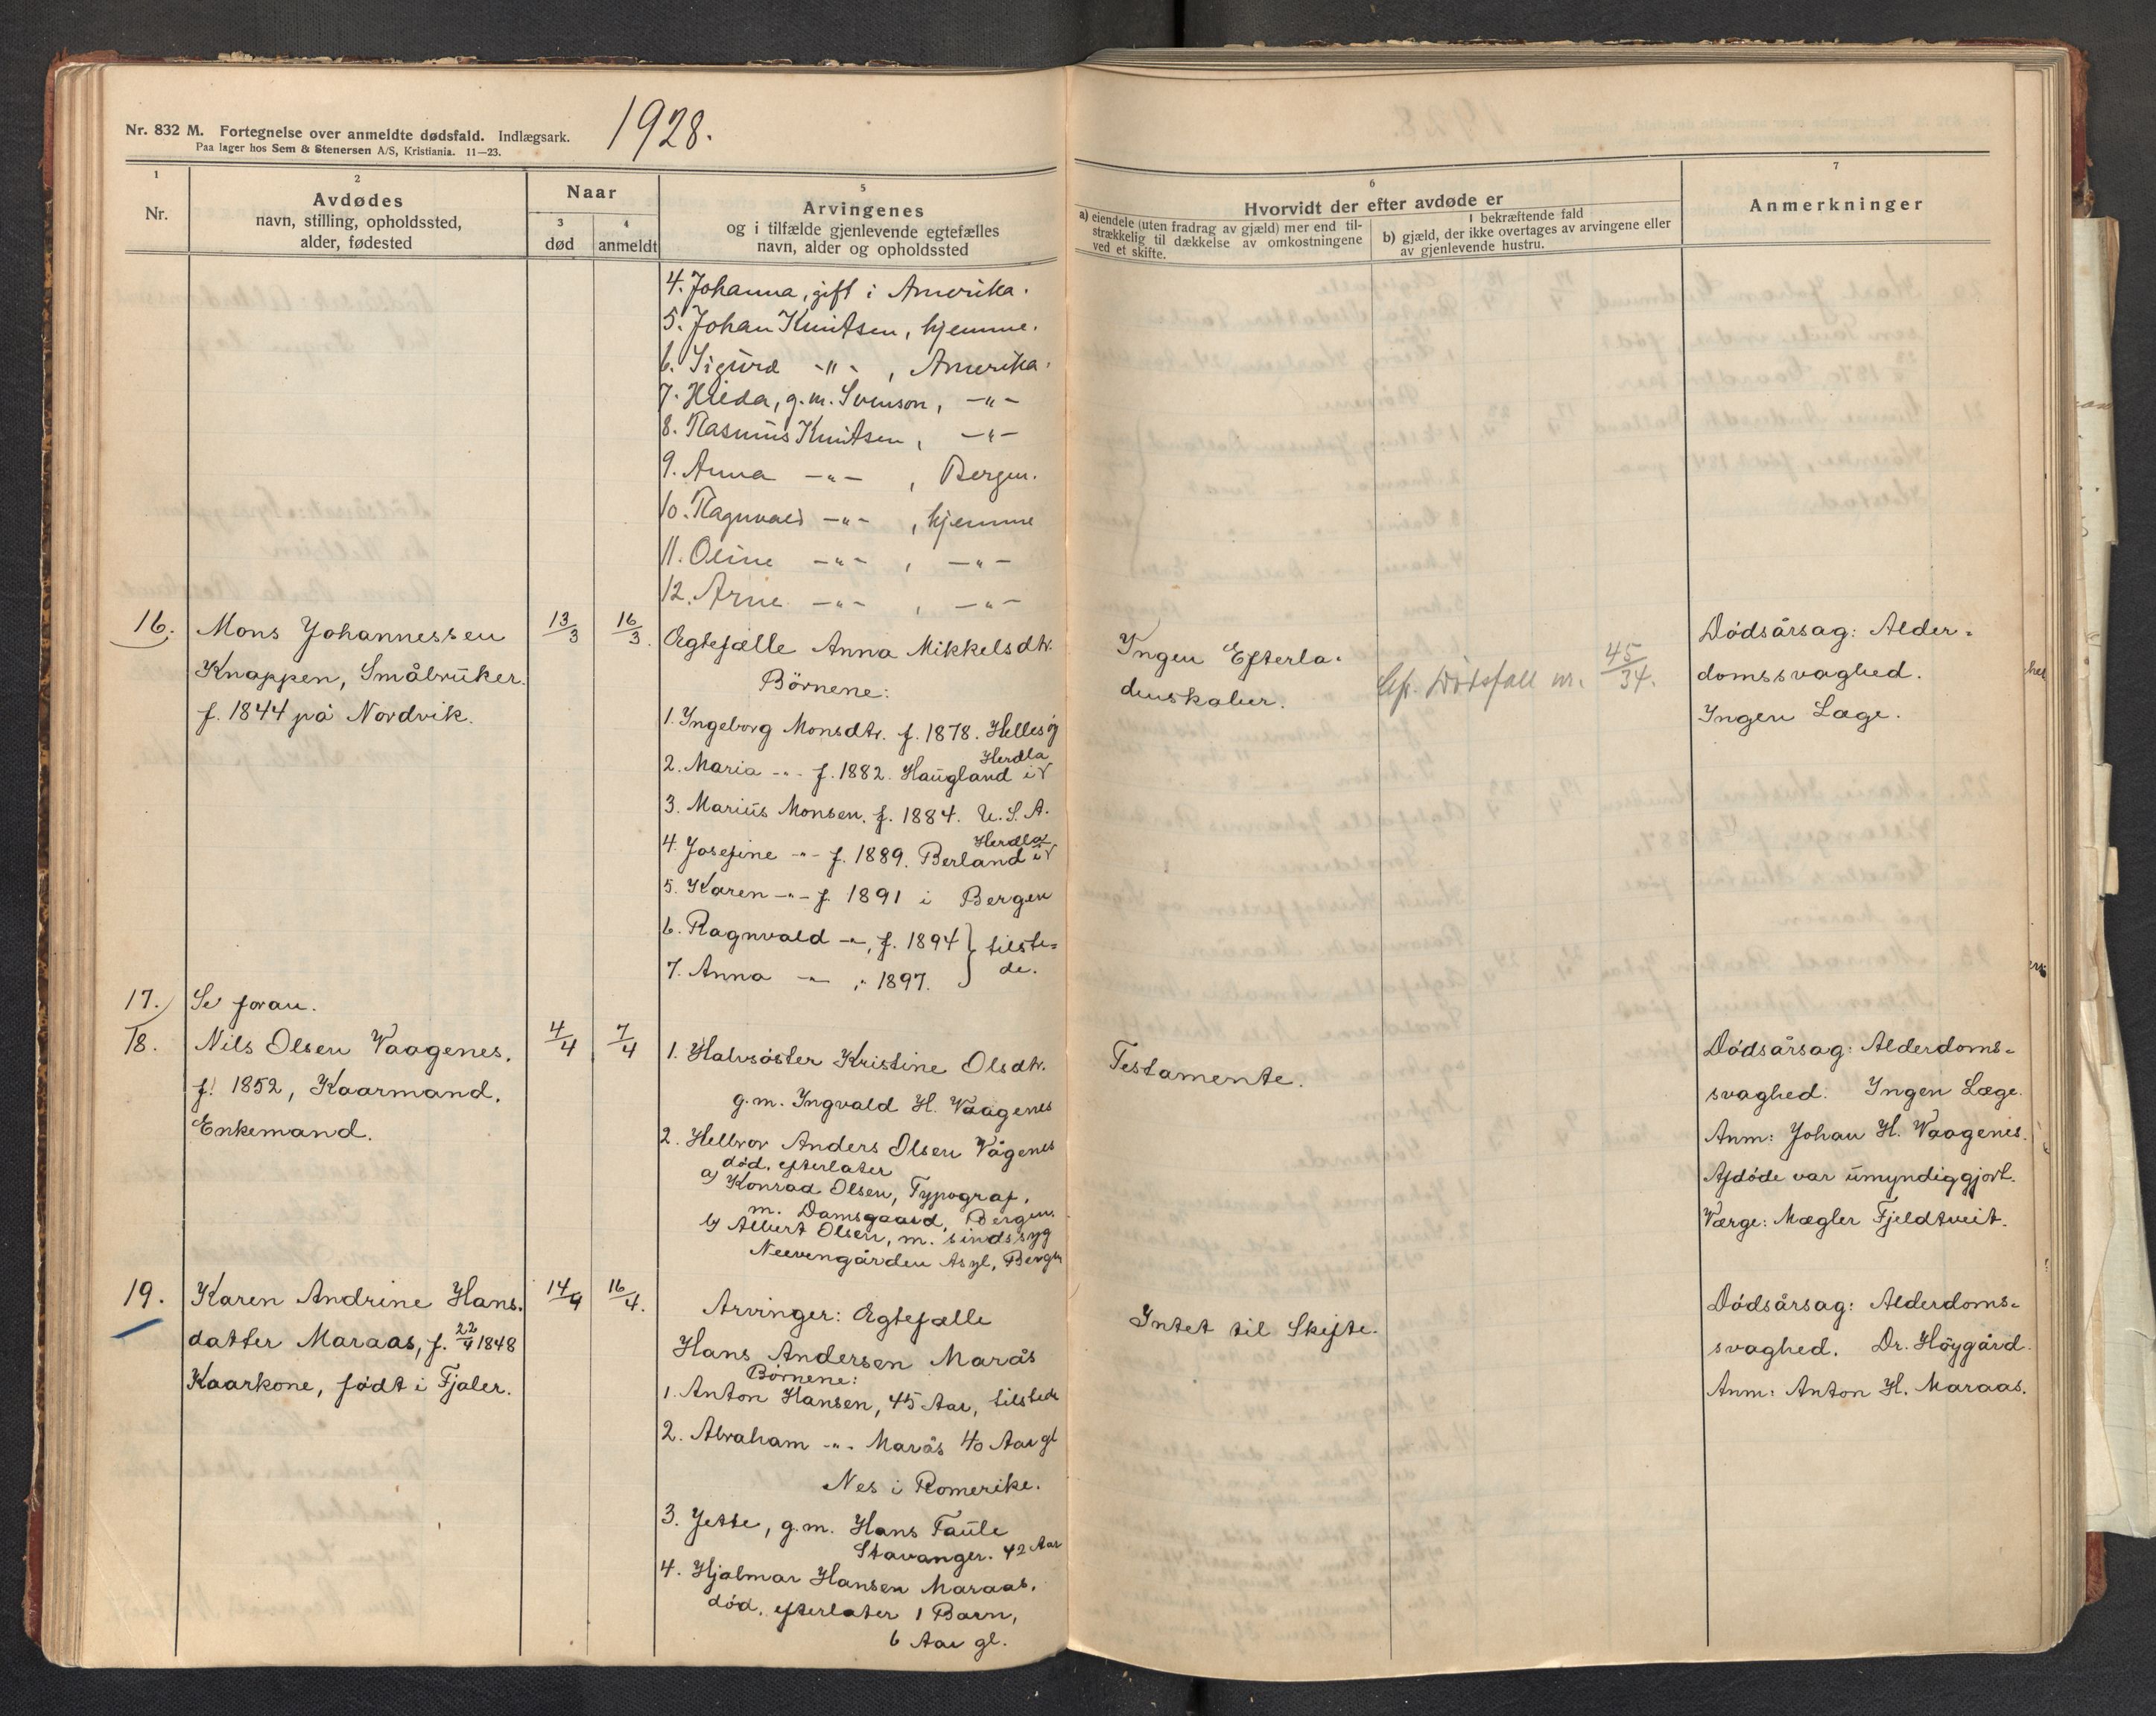 Nr. 832 M. Fortegnelse over anmeldte dødsfald. Indlægsark.
Paa lager hos Sem & Stenersen A/S, Kristiania. 11—23.
1928.
1
Nr.
2
Avdødes
navn, stilling, opholdssted,
alder, fødested
Naar
3
død
4
anmeldt
5
Arvingenes
og i tilfælde gjenlevende egtefælles
navn, alder og opholdssted
6
Hvorvidt der efter avdøde er
a) eiendele (uten fradrag av gjæld) mer end til-
strækkelig til dækkelse av omkostningene
ved et skifte.
I bekræftende fald
b) gjæld, der ikke overtages av arvingene eller
av gjenlevende hustru.
7
Anmerkninger
4. Johanna, gift i Amerika.
5. Johan Knutsen, hjemme.
6. Sigurd -"- , Amerika.
7. Hilda, g.m. Svenson, -"-
8. Rasmus Knutsen, -"-
9. Anna -"- , Bergen.
10. Ragnvald -"- , hjemme
11. Oline -"- , -"-
12. Arne -"- , -"-
16. Mons Johannessen 13/3 16/3.
Knappen, Småbruker.
f. 1844 på Nordvik.
Ægtefælle Anna Mikkelsdtr.
Börnene:
1. Ingeborg Monsdtr. f. 1878. Hellesöy
2. Maria -"- f. 1882. Haugland i Herdla
3. Marius Monsen. f. 1884. U.S.A.
4. Josefine -"- f. 1889. Berland i Herdla
5. Karen -"- f. 1891 i Bergen
6. Ragnvald -"-, f. 1894 } tilste=
7. Anna -"- ," 1897. } de.
Ingen Efterla=
denskaber.
Cfr. Dødsfall nr. 45/34.
Dödsårsag: Alder=
domssvaghed.
Ingen Læge.
17. Se foran.
18. Nils Olsen Vaagenes, 4/4 7/4
f. 1852, Kaarmand.
Enkemand.
1. Halvsöster Kristine Olsdtr.
g.m. Ingvald H. Vaagenes
2. Hellbror Anders Olsen Vågenes
död, efterlater
a) Konrad Olsen, Typograf,
m. Damsgaard, Bergen.
b) Albert Olsen, m. sindssyg
Neevengården Asyl, Bergen
Testamente.
Dödsårsag: Alderdoms=
svaghed. Ingen Læge.
Anm: Johan H. Vaagenes.
Afdöde var umyndiggjort.
Værge: Mægler Fjeldtveit.
19. Karen Andrine Hans. 14/4 16/4.
datter Maraas, f. 22/4 1848
Kaarkone, födt i Fjaler.
Arvinger: Ægtefælle
Hans Andersen Marås
Börnene:
1. Anton Hansen, 45 Aar, tilstede
2. Abraham -"- Marås 40 Aar gl
Nes i Romerike.
3. Jette, g.m. Hans Taule
Stavanger. 42 Aar
4. Hjalmar Hansen Maraas.
död, efterlater 1 Barn,
6 Aar gl.
Intet til Skifte.
Dödsårsag: Alderdoms=
svaghed. Dr. Höygård.
Anm: Anton H. Maraas.